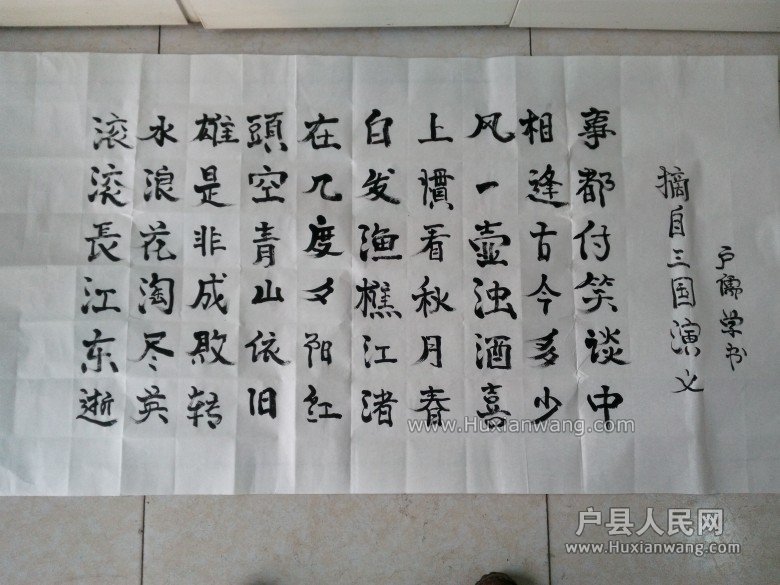 滚滚長江东逝
水浪花淘尽英
雄是非成败转
頭空青山依旧
在几度夕阳红
白发渔樵江渚
上慣看秋月春
风一壶浊酒喜
相逢古今多少
事都付笑谈中
摘自三国演义
户儒学书
www.Huxianwang.com
户县人民网
www.Huxianwang.com